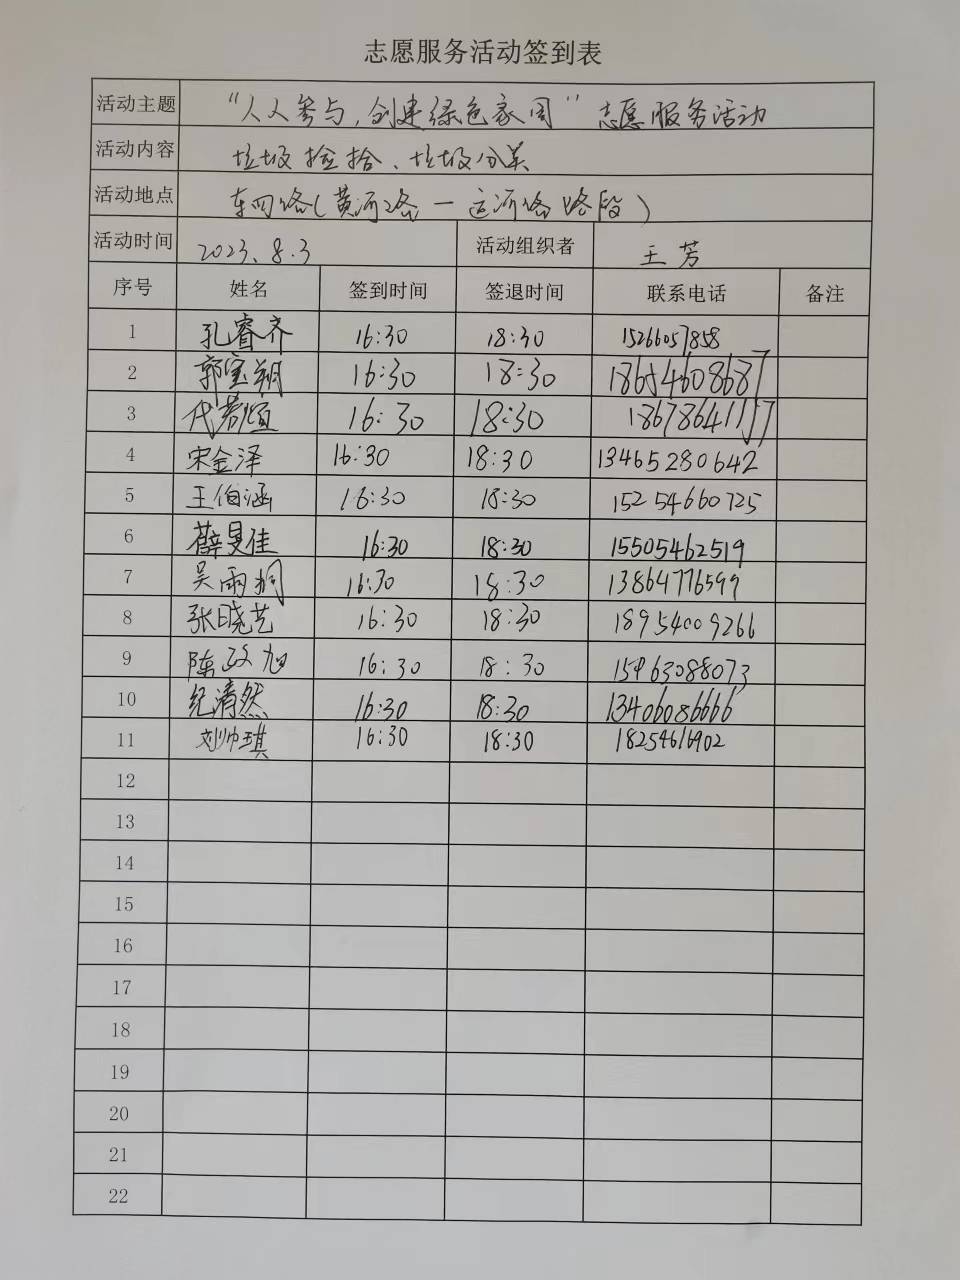 志愿服务活动签到表
活动主题 “人人参与,创建绿色家园”志愿服务活动
活动内容 垃圾捡拾、垃圾分类
活动地点 东四路(黄河路一运河路路段)
活动时间 2023.8.3 活动组织者 王芳
序号 姓名 签到时间 签退时间 联系电话 备注
1 孔睿齐 16:30 18:30 15266057858
2 郭宝翔 16:30 18:30 18654608687
3 16:30 18:30
4 宋金泽 16:30 18:30 13465280642
5 王伯涵 16:30 18:30 15254660725
6 薛旻佳 16:30 18:30 15505462519
7 吴雨桐 16:30 18:30 13864776599
8 张晓艺 16:30 18:30 18954009266
9 陈政旭 16:30 18:30 15963088073
10 纪清然 16:30 18:30 13406086666
11 刘帅琪 16:30 18:30 18254616902
12
13
14
15
16
17
18
19
20
21
22